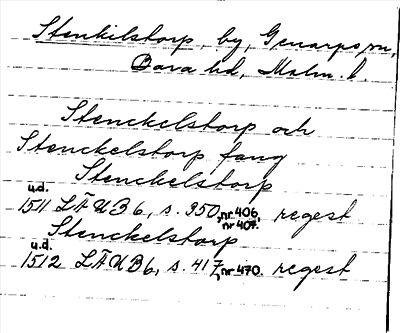 Stenkilstorp, by, Genarps sn,
Bara hd, Malm. l.
Stenckelstorp och
Stenckelstorp fang
Stenckelstorp
u.d.
1511 LÄUB 6, s. 350, nr 406, regest
nr 407.
Stenckelstorp
u.d.
1512 LÄUB 6, s. 417, nr 470. regest